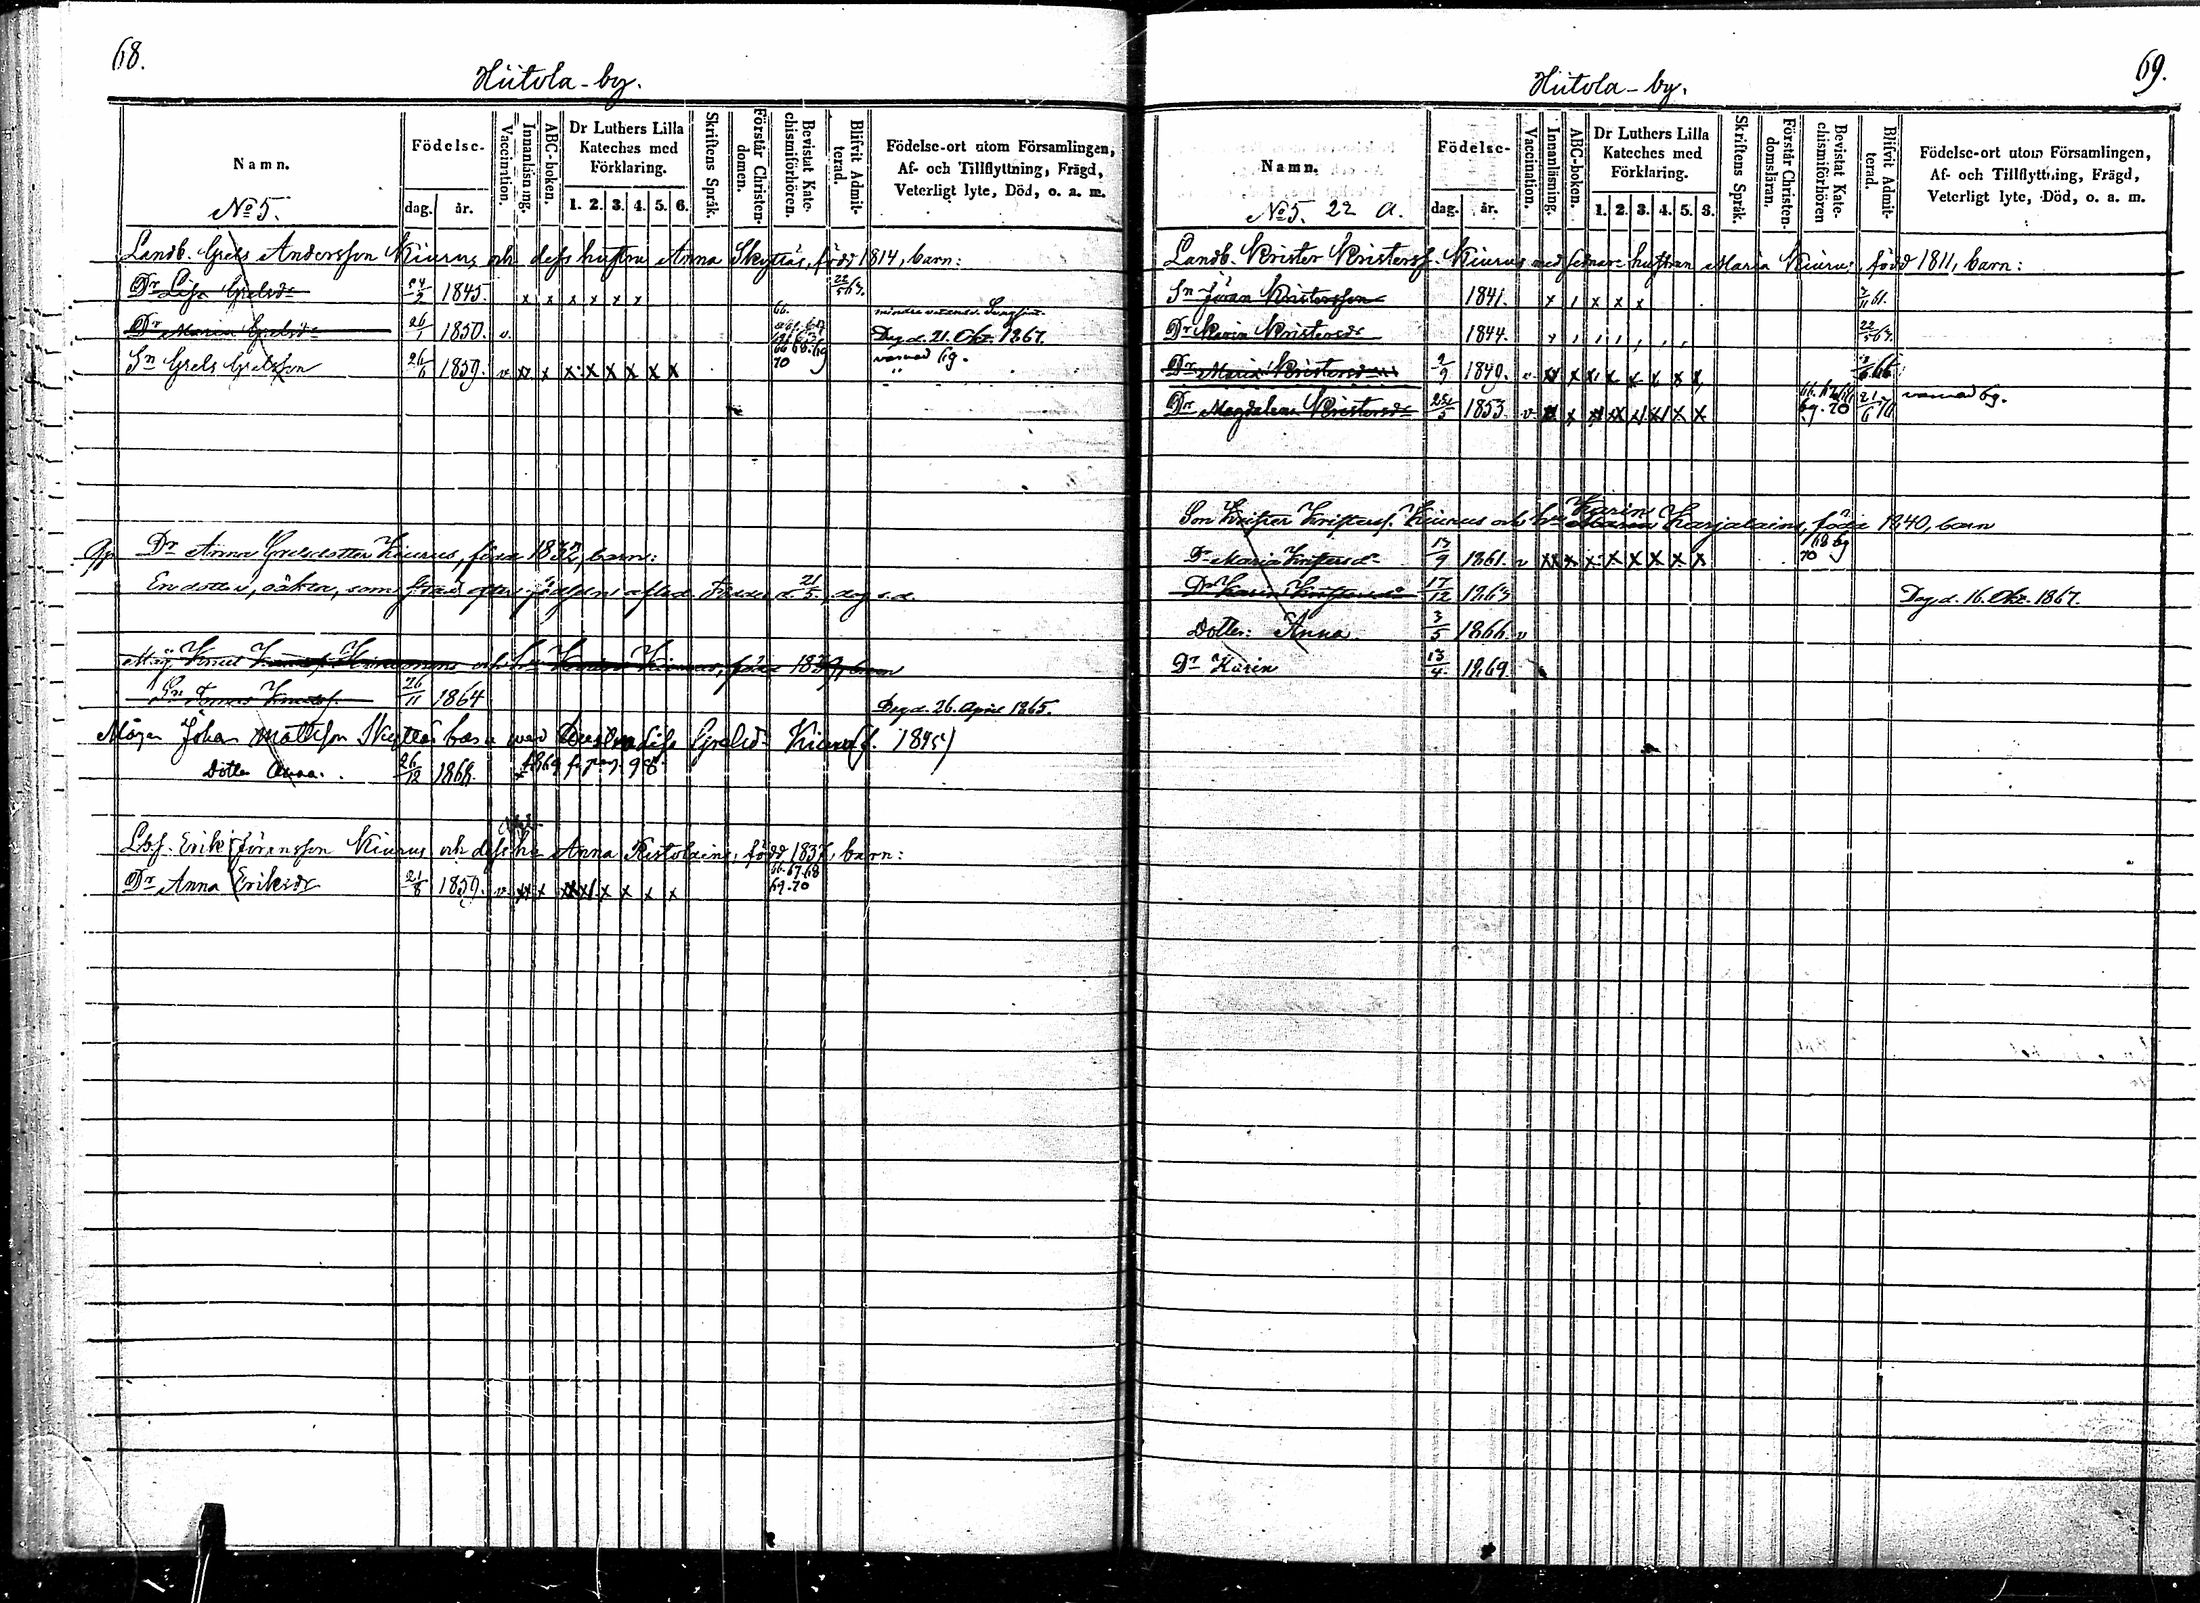 68.
Hiitola-by.
Namn.
Födelse-
dag. år.
Vaccination.
Innanläsning.
ABC-boken.
Dr Luthers Lilla Kateches med Förklaring.
1. 2. 3. 4. 5. 6.
Skriftens Språk.
Förstår Christendomen.
Bevistat Katechismiförhören.
Blifvit Admitterad.
Födelse-ort utom Församlingen, Af- och Tillflyttning, Frägd, Veterligt lyte, Död, o. a. m.
No 5.
Landb. Grels Andersson Kiurus och dess hustru Anna Skyttäs, född 1814, barn:
Dr Lisa Grelsdr 24/2 1845. x x x x x x 22/5 63.
Dr Maria Grelsdr 26/1 1850. v. Dog d. 21. Okt. 1867.
Sn Grels Grelsson 26/6 1859. v xx x x x x x x x 66 68. 69 70 69.
Dr Anna Grelsdotter Kiurus, född 1832, barn:
En dotter, oäkta, som strax efter födseln afled. Föddes d. 21/5, dog s.d.
Måg Knut född 1839, barn
Sn Tomas Knutsf. 26/11 1864 Dog d. 26. April 1865.
Mågen Johan Mattsson Skyttäs Lisa Grelsd. Kiurus (f. 1845)
Dotter Anna. 26/12 1868. 1869 f. pag. 98
Lbf. Erik Jöransson Kiurus och dess hu Anna Ristolain, född 1837, barn:
Dr Anna Eriksdr 21/8 1859. v xx x xx xx x x x x 66. 67. 68 69. 70
69.
Hiitola-by.
Namn.
Födelse-
dag. år.
Vaccination.
Innanläsning.
ABC-boken.
Dr Luthers Lilla Kateches med Förklaring.
1. 2. 3. 4. 5. 3.
Skriftens Språk.
Förstår Christendomsläran.
Bevistat Katechismiförhören
Blifvit Admitterad.
Födelse-ort utom Församlingen, Af- och Tillflyttning, Frägd, Veterligt lyte, Död, o. a. m.
No 5. 22 a.
Landb. Krister Kristersf. Kiurus med sednare hustrun Maria Kiurus, född 1811, barn:
Sn Jöran Kristersson 1841. x x x x 61.
Dr Karin Kristersdr 1844. 22/5 63.
Dr Maria Kristersdr 2/9 1849. v xx x x x x x x x 66.
Dr Magdalena Kristersdr 25/5 1853. v x x x x x x x 69. 70 21/6 70 69.
Son Krister Kristersf. Kiurus och hu Karin Karjalain, född 1840, barn
Dr Maria Kristersdr 13/9 1861. v xx x x x x x x x 68 69 70
Dr Karin Kristersdr 17/12 1863 Dog d. 16. Okt. 1867.
Dotter: Anna 3/5 1866. v
Dr Karin 13/4. 1869.